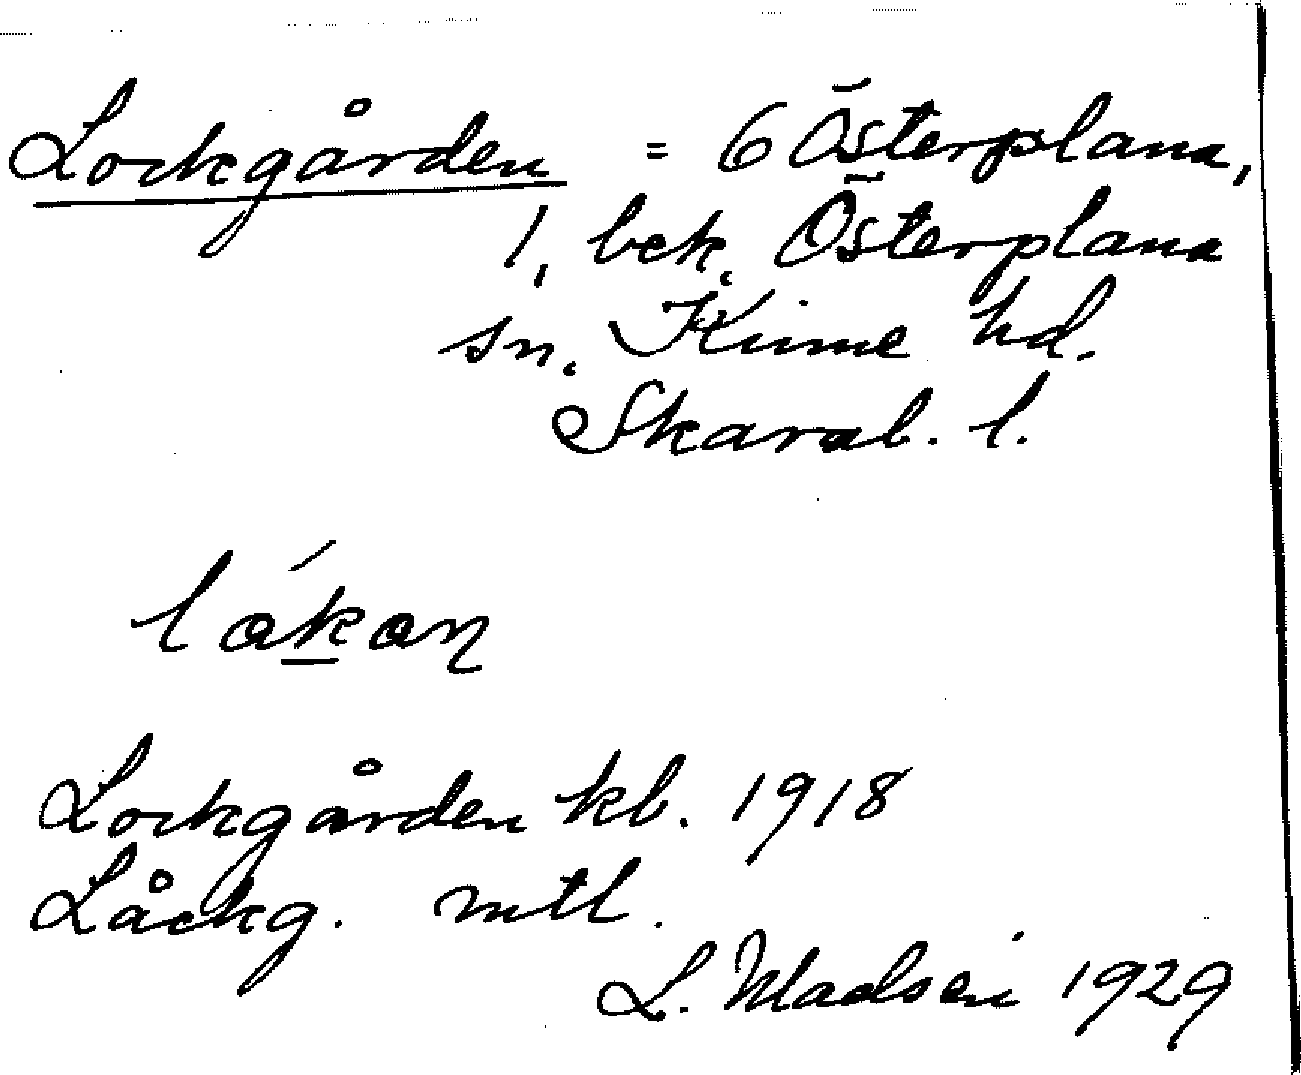 Lockgården = 6 Österplana,
1, bek. Österplana
sn. Kinne hd.
Skarab. l.
låkan
Lockgården kb. 1918
Låckg. mtl.
L. Madsén 1929